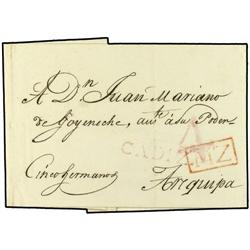 A Dn. Juan Mariano
de Goyeneche, aus.te á su Poder
CADIZ MZ
Cinco hermanos Arequipa